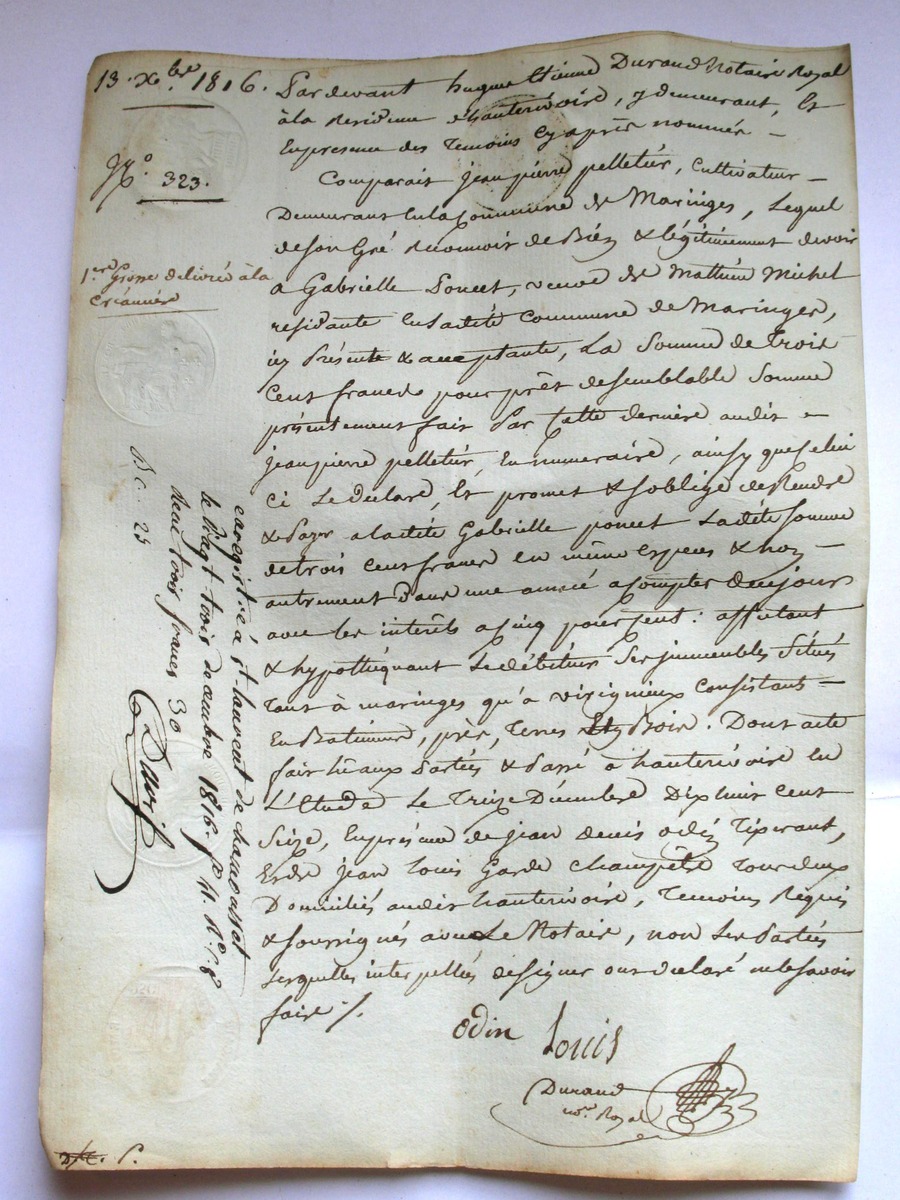 13. Xbre. 1816.
No. 323.
1ere Grosse délivrée à la
créancière
Pardevant hugue Etienne Durand Notaire Royal
à la residence d'hauterivoire, y demeurant, Et
En presence des temoins cy après nommés —
Comparait jean pierre pelletier, Cultivateur —
Demeurant en la Commune de Maringes, Lequel
de son Gré reconnoit de Bien & légitimement devoir
a Gabrielle Poncet, veuve de Mathieu Michel
residante en ladite Commune de Maringes,
icy Présente & acceptante, La Somme de trois
Cent francs pour prêt de semblable Somme
présentement fait Par Cette dernière audit —
jean pierre pelletier, En numeraire, ainsy que celui
ci Le declare, Et promet & s'oblige de Rendre
& Payer a ladite Gabrielle poncet Ladite somme
de trois Cent francs en même espece & non —
autrement Dans une année a Compter de ce jour
avec les intérêts a Cinq pour Cent : affectant
& hypothéquant Le débiteur Ses immeubles Situés
tant à maringes qu'à virigneux Consistants —
En Batiments, près, Terres Et Bois. Dont acte
fait Aux Parties & Passé à hauterivoire en
L'Etude Le Treize Décembre Dix huit Cent
Seize, En présence de jean denis odin Tisserant,
Et de jean Louis Garde Champêtre tous deux
Domiciliés audit hauterivoire, Temoins Requis
& soussignés avec Le Notaire, non Les Parties
Lesquelles interpellées de signer ont declaré ne le savoir
faire ./.
Odin Louis
Durand
nore. Royal
enregistré à St. Laurent de chamousset
le vingt-trois décembre 1816. fo. 11. Ro. C. 8
Reçu trois francs 30
Dc. 25